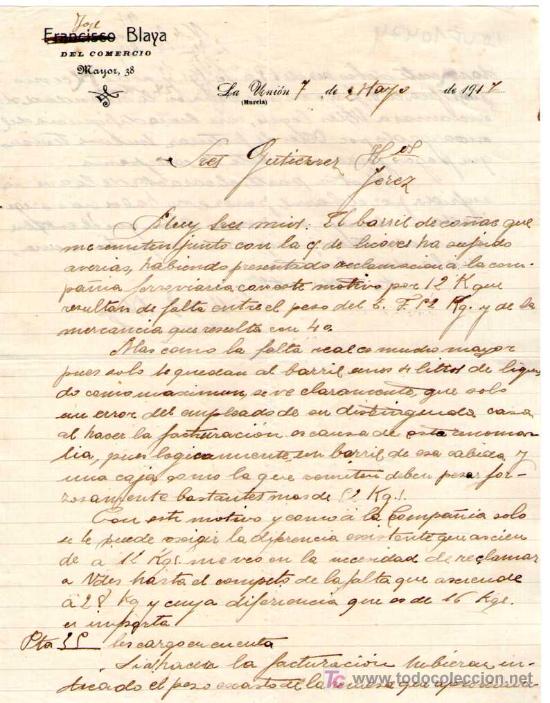 José
Francisco Blaya
DEL COMERCIO
Mayor, 38
La Unión 7 de Mayo de 1917
(Murcia)
Sres Gutierrez Hos
Jerez
Muy Sres mios: El barril de coñac que
me remiten junto con la de licores ha sufrido
averias, habiendo presentado reclamacion a la com-
pañia ferroviaria con este motivo por 12 K que
resultan de falta entre el peso del 52 Kg. y de la
mercancia que resulta con 40
Mas como la falta real es mucho mayor
pues solo le quedan al barril unos 4 litros de liqui-
do como maximun, se ve claramente, que solo
un error del empleado de su distinguida casa
al hacer la facturación es causa de esta anoma-
lia, pues logicamente un barril de esa cabida y
una caja como la que remiten deben pesar for-
zosamente bastantes mas de 52 Kgs.
Con este motivo y como à la Compañia solo
se le puede exigir la diferencia existente que ascien-
de a 12 Kgs me veo en la necesidad de reclamar
a Vdes hasta el completo de la falta que asciende
à 28 Kg y cuya diferencia que es de 16 Kgs.
importa
Pta les cargo en cuenta
Si al hacer la facturación hubieran in-
dicado el peso exacto de la
TC www.todocoleccion.net